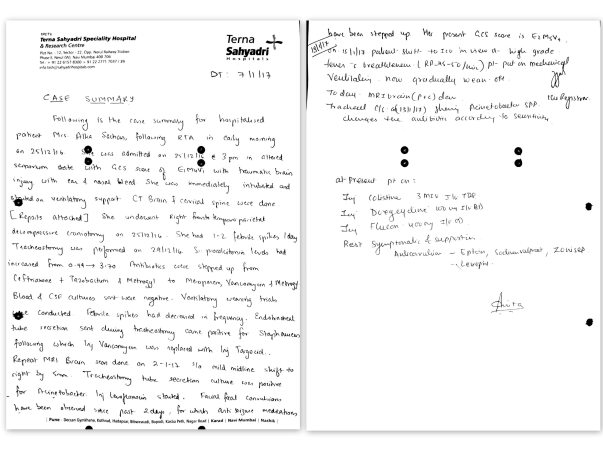 Terna Sahyadri Speciality Hospital
& Research Centre
Plot No - 12, Sector - 22, Opp. Nerul Railway Station
Phase II, Nerul (W), Navi Mumbai 400 706
Terna
Sahyadri
Hospitals
DT: 7/1/17
CASE SUMMARY
Following is the case summary for hospitalised
patient Mrs. Alka following RTA in early morning
on 25/12/16. She was admitted on 25/12/16 @ 3 pm in altered
sensorium state with GCS score of with traumatic brain
injury with ear & nasal bleed She was immediately intubated and
started on ventilatory support. CT Brain & cervical spine were done
[Reports attached] She underwent Right fronto temporo parietal
decompressive craniotomy on 25/12/16. She had 1-2 febrile spikes /day
Tracheostomy was performed on 29/12/16. S. procalcitonin levels had
increased from 0.44 → 3.70 Antibiotics were stepped up from
+ Tazobactum & Metrogyl to Meropenem, Vancomycin & Metrogyl
Blood & CSF cultures sent were negative. Ventilatory weaning trials
were conducted. Febrile spikes had decreased in frequency. Endotracheal
tube secretion sent during tracheostomy came positive for
following which Inj Vancomycin was replaced with Inj Targocid.
Repeat MRI Brain was done on 2-1-17 s/o mild midline shift to
right by 5mm. Tracheostomy tube secretion culture was positive
for Acinetobacter Inj started. Facial focal convulsions
have been observed since past 2 days, for which anti seizure medications
| Pune : Deccan Gymkhana, Kothrud, Hadapsar, Bibwewadi, Bopodi, Kasba Peth, Nagar Road | Karad | Navi Mumbai | Nashik |
have been stepped up. Her present GCS score is
on 15/1/17 patient shift to ICU in view of high grade
fever & breathlessness (RR 45-50/min) pt put on mechanical
Ventilatory. now gradually wean off.
Today MRI brain (P+C) done
Tracheal C/S of (13/1/17) showing Acinetobacter SPP.
changes the antibiotic according to sensitivity
ICU Registrar
at Present pt on:
Inj Colistine 3 MIU I/V TDS
Inj Doxycycline 100mg I/V BD
Inj Flucon 400mg I/V OD
Rest Symptomatic & supportive
Anticonvulsion - Eptoin, Sodium valproate,
- Levepsy